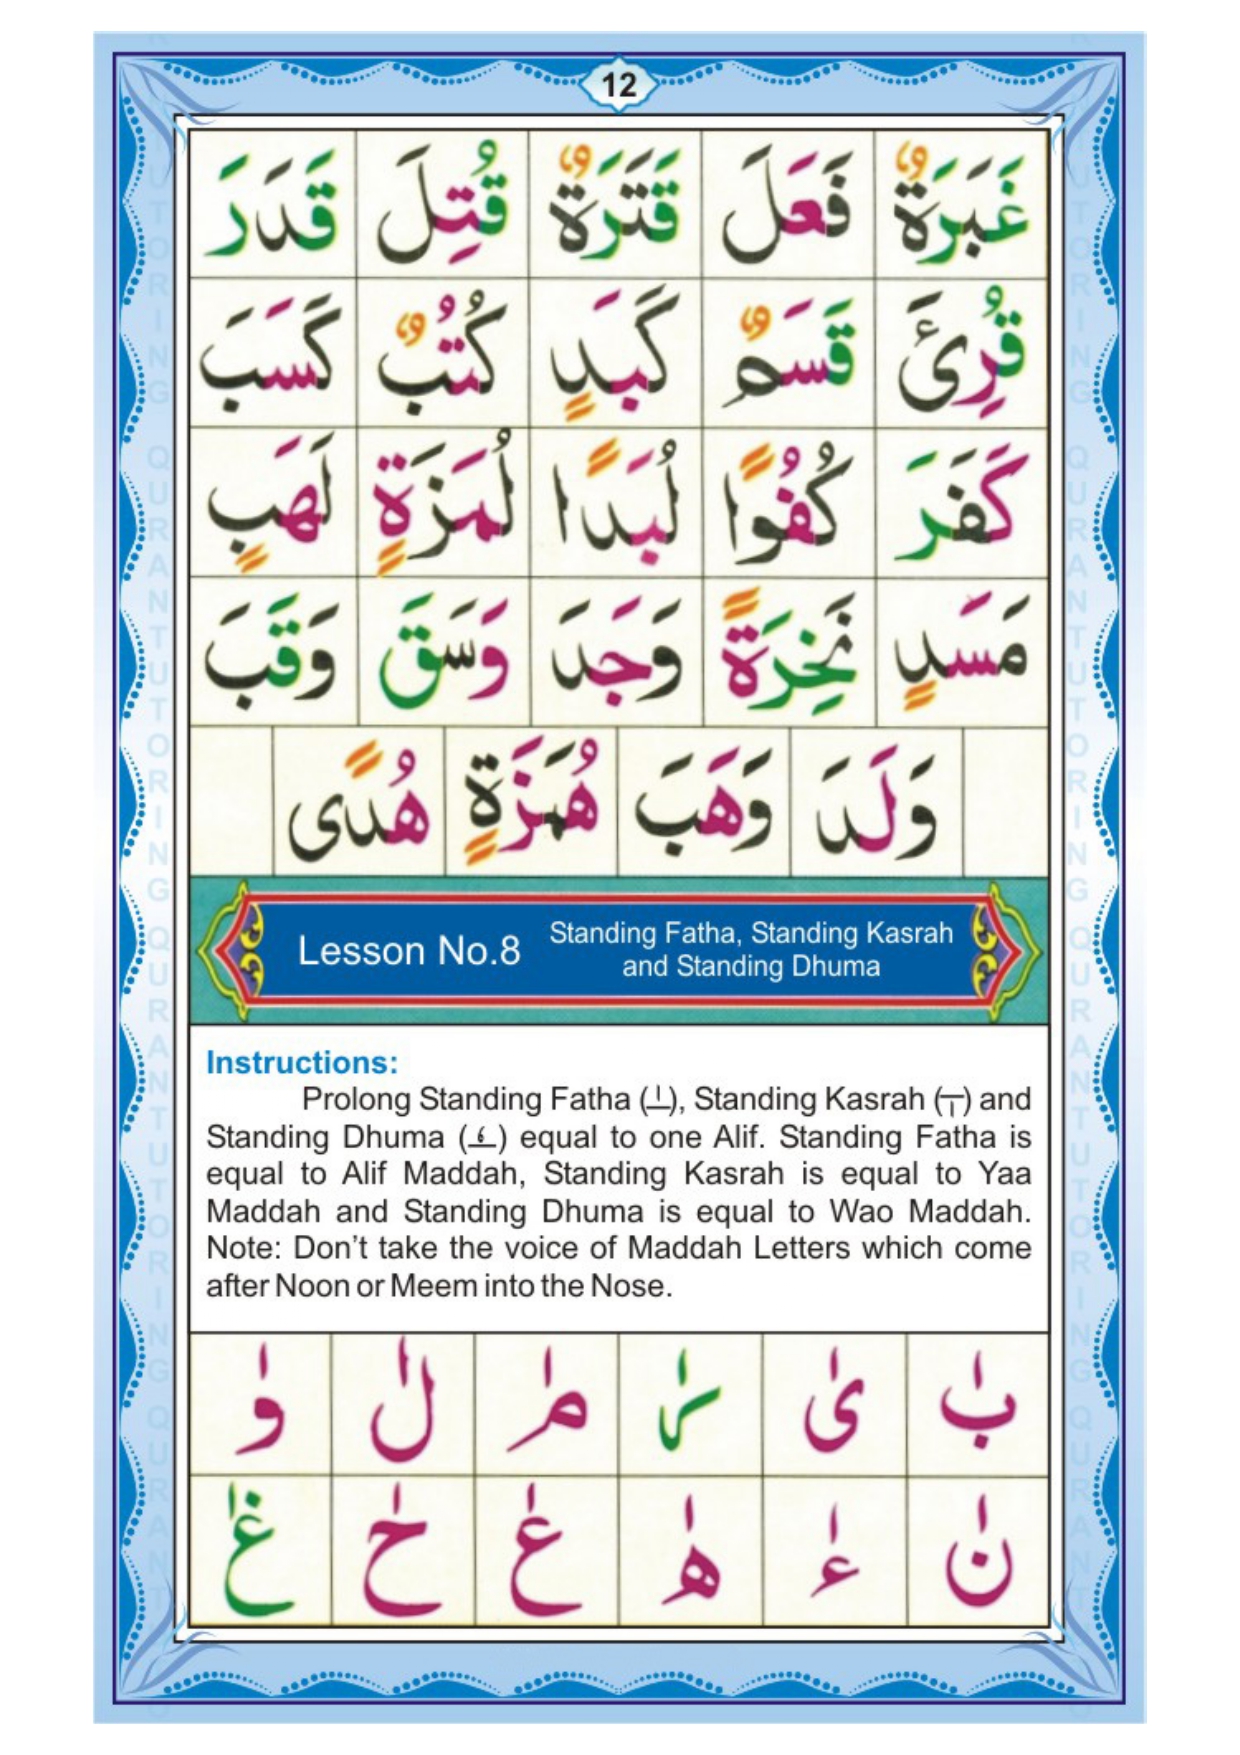 12
غَبَرَةٌ فَعَلَ قَتَرَةٌ قُتِلَ قَدَرَ
قُرِئَ قَسَمٌ كَبَدٍ كُتُبٌ كَسَبَ
كَفَرَ كُفُوًا لُبَدًا لُمَزَةٍ لَهَبٍ
مَسَدٍ نَخِرَةً وَجَدَ وَسَقَ وَقَبَ
وَلَدَ وَهَبَ هُمَزَةٍ هُدًى
Lesson No.8
Standing Fatha, Standing Kasrah
and Standing Dhuma
Instructions:
Prolong Standing Fatha (ـٰ), Standing Kasrah (ـٖ) and
Standing Dhuma (ـٗ) equal to one Alif. Standing Fatha is
equal to Alif Maddah, Standing Kasrah is equal to Yaa
Maddah and Standing Dhuma is equal to Wao Maddah.
Note: Don't take the voice of Maddah Letters which come
after Noon or Meem into the Nose.
بٰ یٰ رٰ مٰ لٰ وٰ
نٰ ءٰ هٰ عٰ حٰ غٰ
QURAN TUTORING QURAN TUTORING QURAN TUTORING